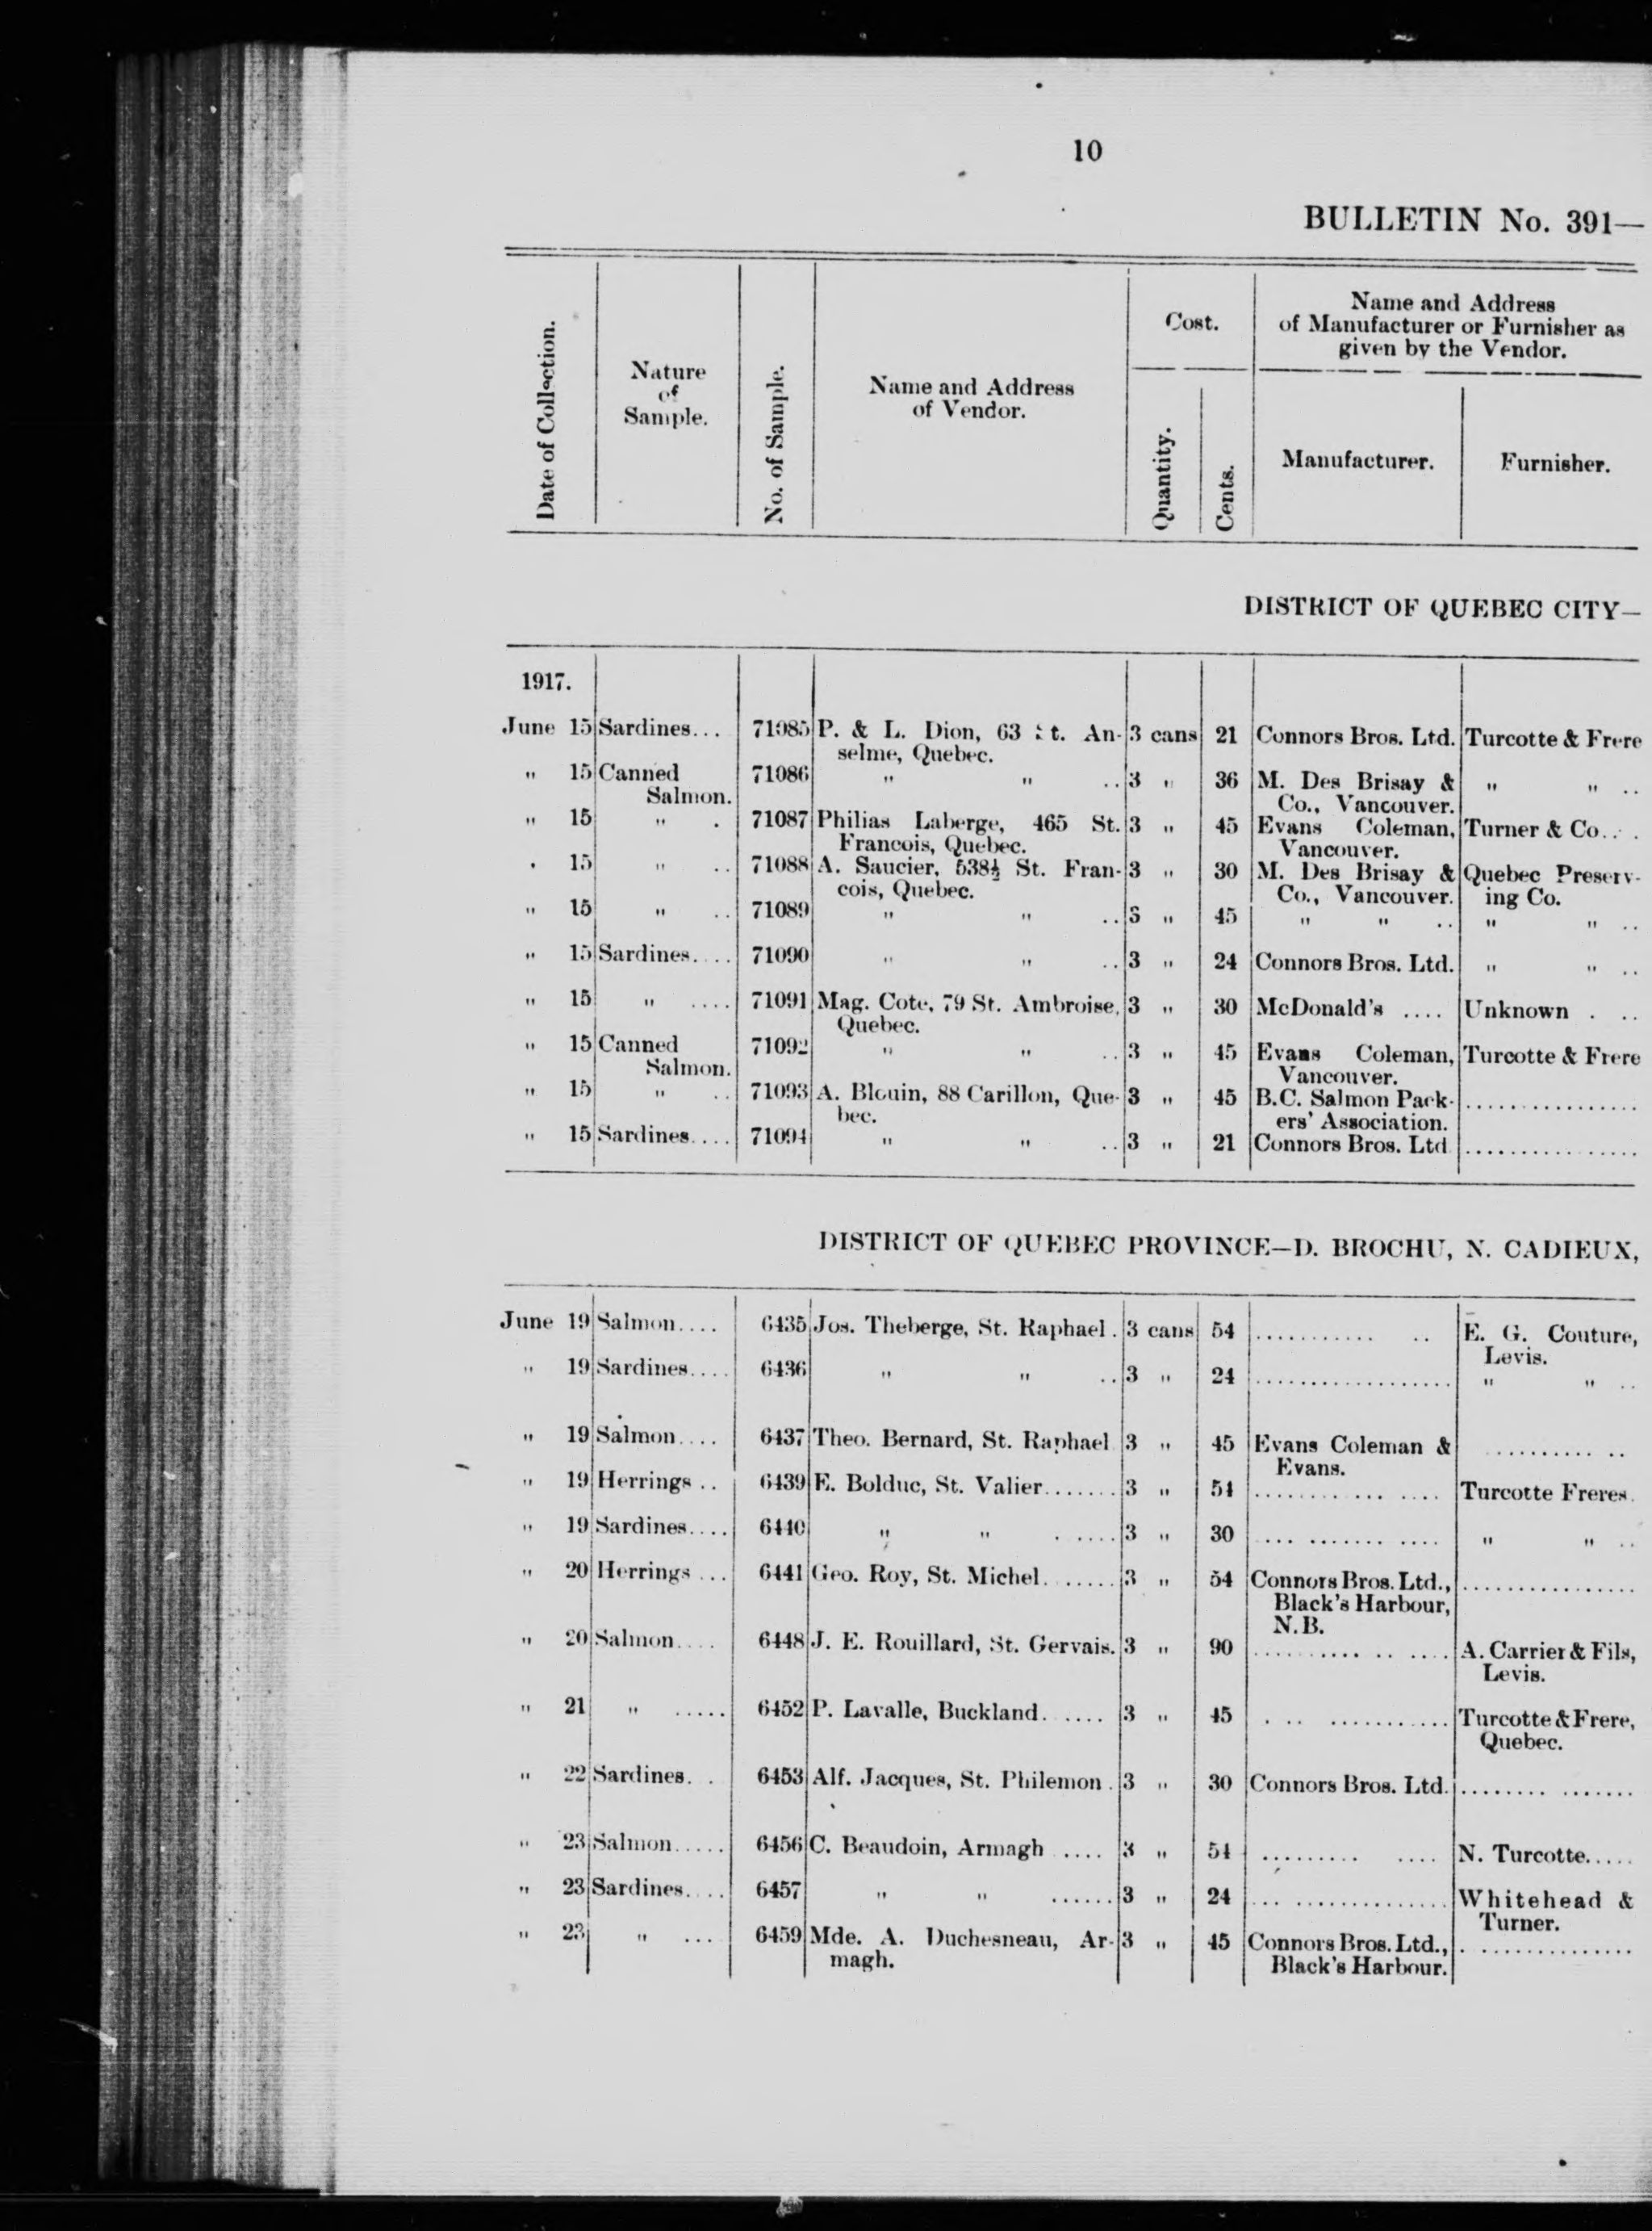 10
BULLETIN No. 391—
Date of Collection.
Nature
of
Sample.
No. of Sample.
Name and Address
of Vendor.
Cost.
Quantity.
Cents.
Name and Address
of Manufacturer or Furnisher as
given by the Vendor.
Manufacturer.
Furnisher.
DISTRICT OF QUEBEC CITY—
1917.
June 15 Sardines... 71085 P. & L. Dion, 63 St. An- 3 cans 21 Connors Bros. Ltd. Turcotte & Frere
selme, Quebec.
" 15 Canned 71086 " " .. 3 " 36 M. Des Brisay & " " ..
Salmon. Co., Vancouver.
" 15 " . 71087 Philias Laberge, 465 St. 3 " 45 Evans Coleman, Turner & Co.. .
Francois, Quebec. Vancouver.
" 15 " .. 71088 A. Saucier, 538½ St. Fran- 3 " 30 M. Des Brisay & Quebec Preserv-
cois, Quebec. Co., Vancouver. ing Co.
" 15 " .. 71089 " " .. 3 " 45 " " .. " " ..
" 15 Sardines.... 71090 " " .. 3 " 24 Connors Bros. Ltd. " " ..
" 15 " .... 71091 Mag. Cote, 79 St. Ambroise, 3 " 30 McDonald's .... Unknown . ..
Quebec.
" 15 Canned 71092 " " .. 3 " 45 Evans Coleman, Turcotte & Frere
Salmon. Vancouver.
" 15 " .. 71093 A. Blouin, 88 Carillon, Que- 3 " 45 B.C. Salmon Pack- ................
bec. ers' Association.
" 15 Sardines.... 71094 " " .. 3 " 21 Connors Bros. Ltd ................
DISTRICT OF QUEBEC PROVINCE—D. BROCHU, N. CADIEUX,
June 19 Salmon.... 6435 Jos. Theberge, St. Raphael . 3 cans 54 ........... .. E. G. Couture,
Levis.
" 19 Sardines.... 6436 " " .. 3 " 24 .................. " " ..
" 19 Salmon.... 6437 Theo. Bernard, St. Raphael 3 " 45 Evans Coleman & .......... ..
Evans.
" 19 Herrings .. 6439 E. Bolduc, St. Valier....... 3 " 54 ............ .... Turcotte Freres.
" 19 Sardines.... 6440 " " . .... 3 " 30 .... ....... .... " " ..
" 20 Herrings ... 6441 Geo. Roy, St. Michel. ...... 3 " 54 Connors Bros. Ltd., ................
Black's Harbour,
N.B.
" 20 Salmon.... 6448 J. E. Rouillard, St. Gervais. 3 " 90 .......... .. .... A. Carrier & Fils,
Levis.
" 21 " ..... 6452 P. Lavalle, Buckland. ..... 3 " 45 . .. ............ Turcotte & Frere,
Quebec.
" 22 Sardines. . 6453 Alf. Jacques, St. Philemon . 3 " 30 Connors Bros. Ltd. ........ .......
" 23 Salmon..... 6456 C. Beaudoin, Armagh .... 3 " 54 ......... .... N. Turcotte.....
" 23 Sardines.... 6457 " " ...... 3 " 24 ... ............... Whitehead &
Turner.
" 23 " ... 6459 Mde. A. Duchesneau, Ar- 3 " 45 Connors Bros. Ltd., . ..............
magh. Black's Harbour.